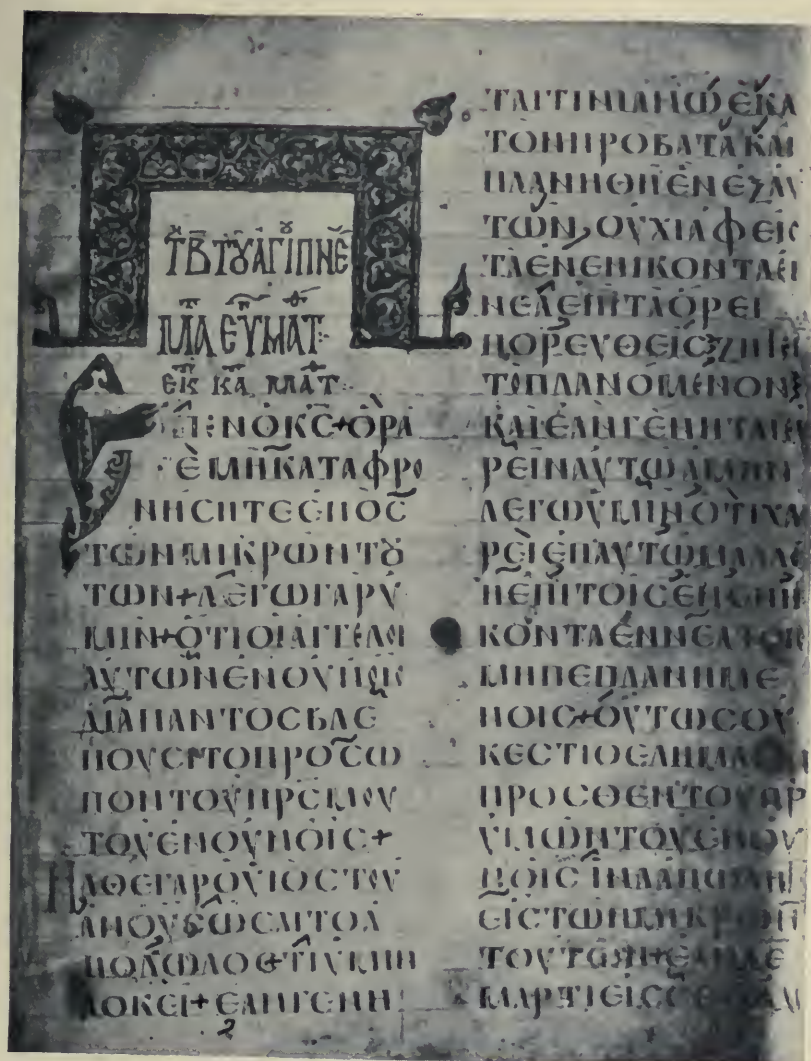 ΤΒ ΤȢ ΑΓΙ ΠΝΕ
ΕΚ ΚΑ ΜΑΤ
ΕΙΠΕΝ Ο ΚC + ΟΡΑ
ΤΕ ΜΗ ΚΑΤΑΦΡΟ
ΝΗCΗΤΕ ΕΝΟC
ΤΩΝ ΜΙΚΡΩΝ ΤȢ
ΤΩΝ + ΛΕΓΩ ΓΑΡ Υ
ΜΙΝ + ΟΤΙ ΟΙ ΑΓΓΕΛΟΙ
ΑΥΤΩΝ ΕΝ ΟΥΝΟΙC
ΔΙΑΠΑΝΤΟC ΒΛΕ
ΠΟΥCΙ ΤΟ ΠΡΟCΩ
ΠΟΝ ΤΟΥ ΠΡC ΜΟΥ
ΤΟΥ ΕΝ ΟΥΝΟΙC +
ΗΛΘΕ ΓΑΡ Ο ΥΙΟC ΤΟΥ
ΑΝΟΥ CΩCΑΙ ΤΟ Α
ΠΟΛΩΛΟC + ΤΙ ΥΜΙΝ
ΔΟΚΕΙ + ΕΑΝ ΓΕΝΗ
ΤΑΙ ΤΙΝΙ ΑΝΩ ΕΚΑ
ΤΟΝ ΠΡΟΒΑΤΑ ΚΑΙ
ΠΛΑΝΗΘΗ ΕΝ ΕΞ ΑΥ
ΤΩΝ, ΟΥΧΙ ΑΦΕΙC
ΤΑ ΕΝΕΝΙΚΟΝΤΑ ΕΝ
ΝΕΑ ΕΠΙ ΤΑ ΟΡΕΙ
ΠΟΡΕΥΘΕΙC ΖΗΤΕΙ
ΤΟ ΠΛΑΝΟΜΕΝΟΝ
ΚΑΙ ΕΑΝ ΓΕΝΗΤΑΙ ΕΥ
ΡΕΙΝ ΑΥΤΩ ΑΜΗΝ
ΛΕΓΩ ΥΜΙΝ ΟΤΙ ΧΑ
ΡΕΙ ΕΠ ΑΥΤΩ ΜΑΛΛΟ
Η ΕΠΙ ΤΟΙC ΕΝΕΝΗ
ΚΟΝΤΑ ΕΝΝΕΑ ΤΟΙC
ΜΗ ΠΕΠΛΑΝΗΜΕ
ΝΟΙC + ΟΥΤΩC ΟΥ
Κ ΕCΤΙ ΘΕΛΗΜΑ
ΠΡΟCΘΕΝ ΤΟΥ ΠΡ
ΥΜΩΝ ΤΟΥ ΕΝ ΟΥ
ΝΟΙC ΙΝΑ ΑΠΟΛΗ
ΕΙC ΤΩΝ ΜΙΚΡΩΝ
ΤΟΥΤΩΝ + ΕΑΝ ΔΕ
ΜΑΡΤΙ ΕΙC CΕ
2